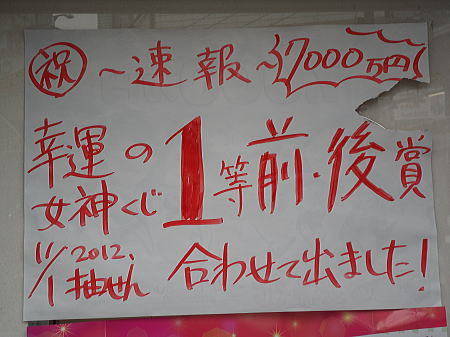 祝 ～速報～ 7000万円
幸運の
女神くじ
1等前・後賞
11/1 2012. 抽せん
合わせて出ました!